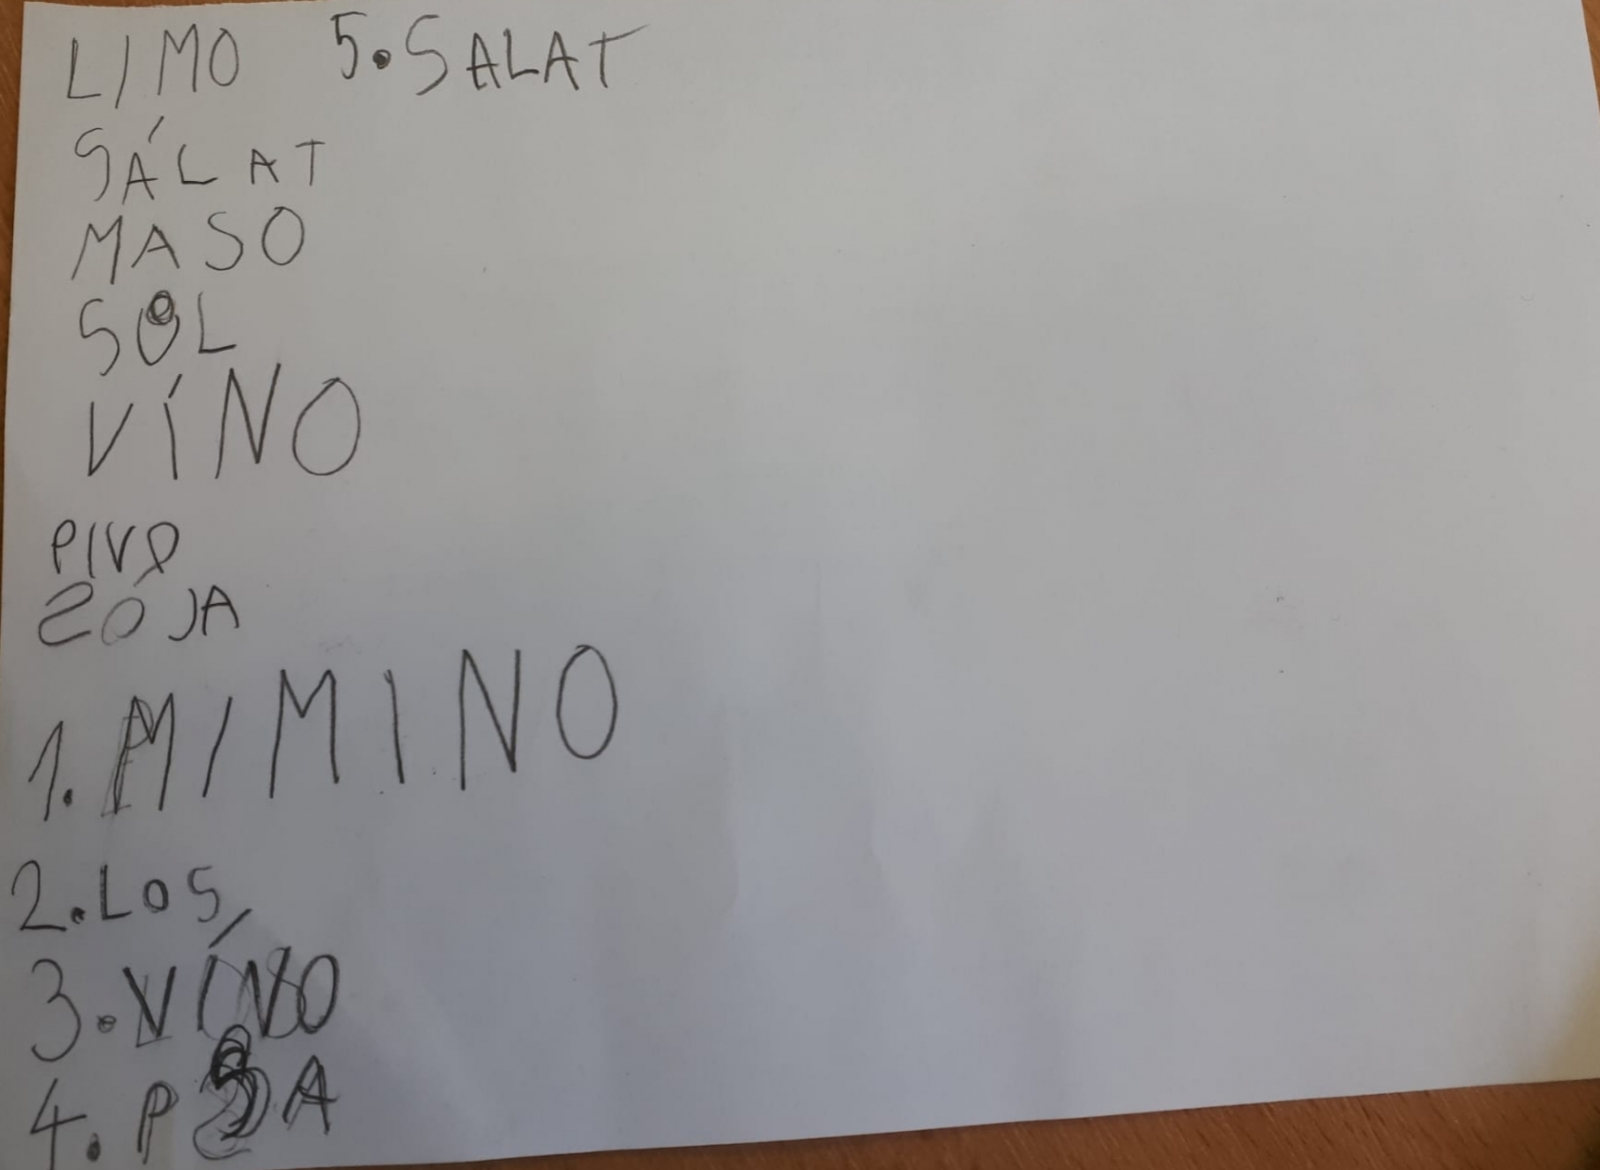 LIMO 5. SALAT
SÁLAT
MASO
SOL
VÍNO
PIVO
ZÓJA
1. MIMINO
2. LOS
3. VÍNO
4.